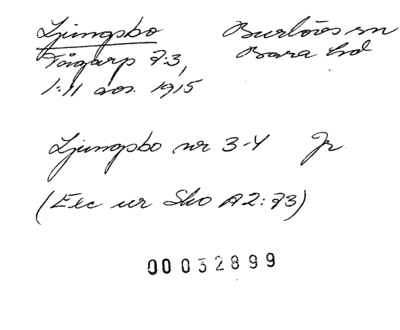 Ljungsbo Burlövs sn
Tågarp 7:3, Bara hd
1:11 avs. 1915
Ljungsbo nr 3-4 Jr
(Exc ur Sko A2:73)
00032899